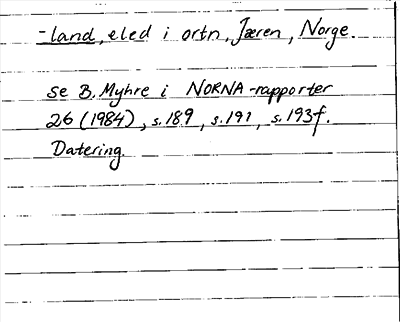 -land, eled i ortn, Jæren, Norge.
se B. Myhre i NORNA-rapporter
26 (1984), s. 189, s. 191, s. 193f.
Datering.